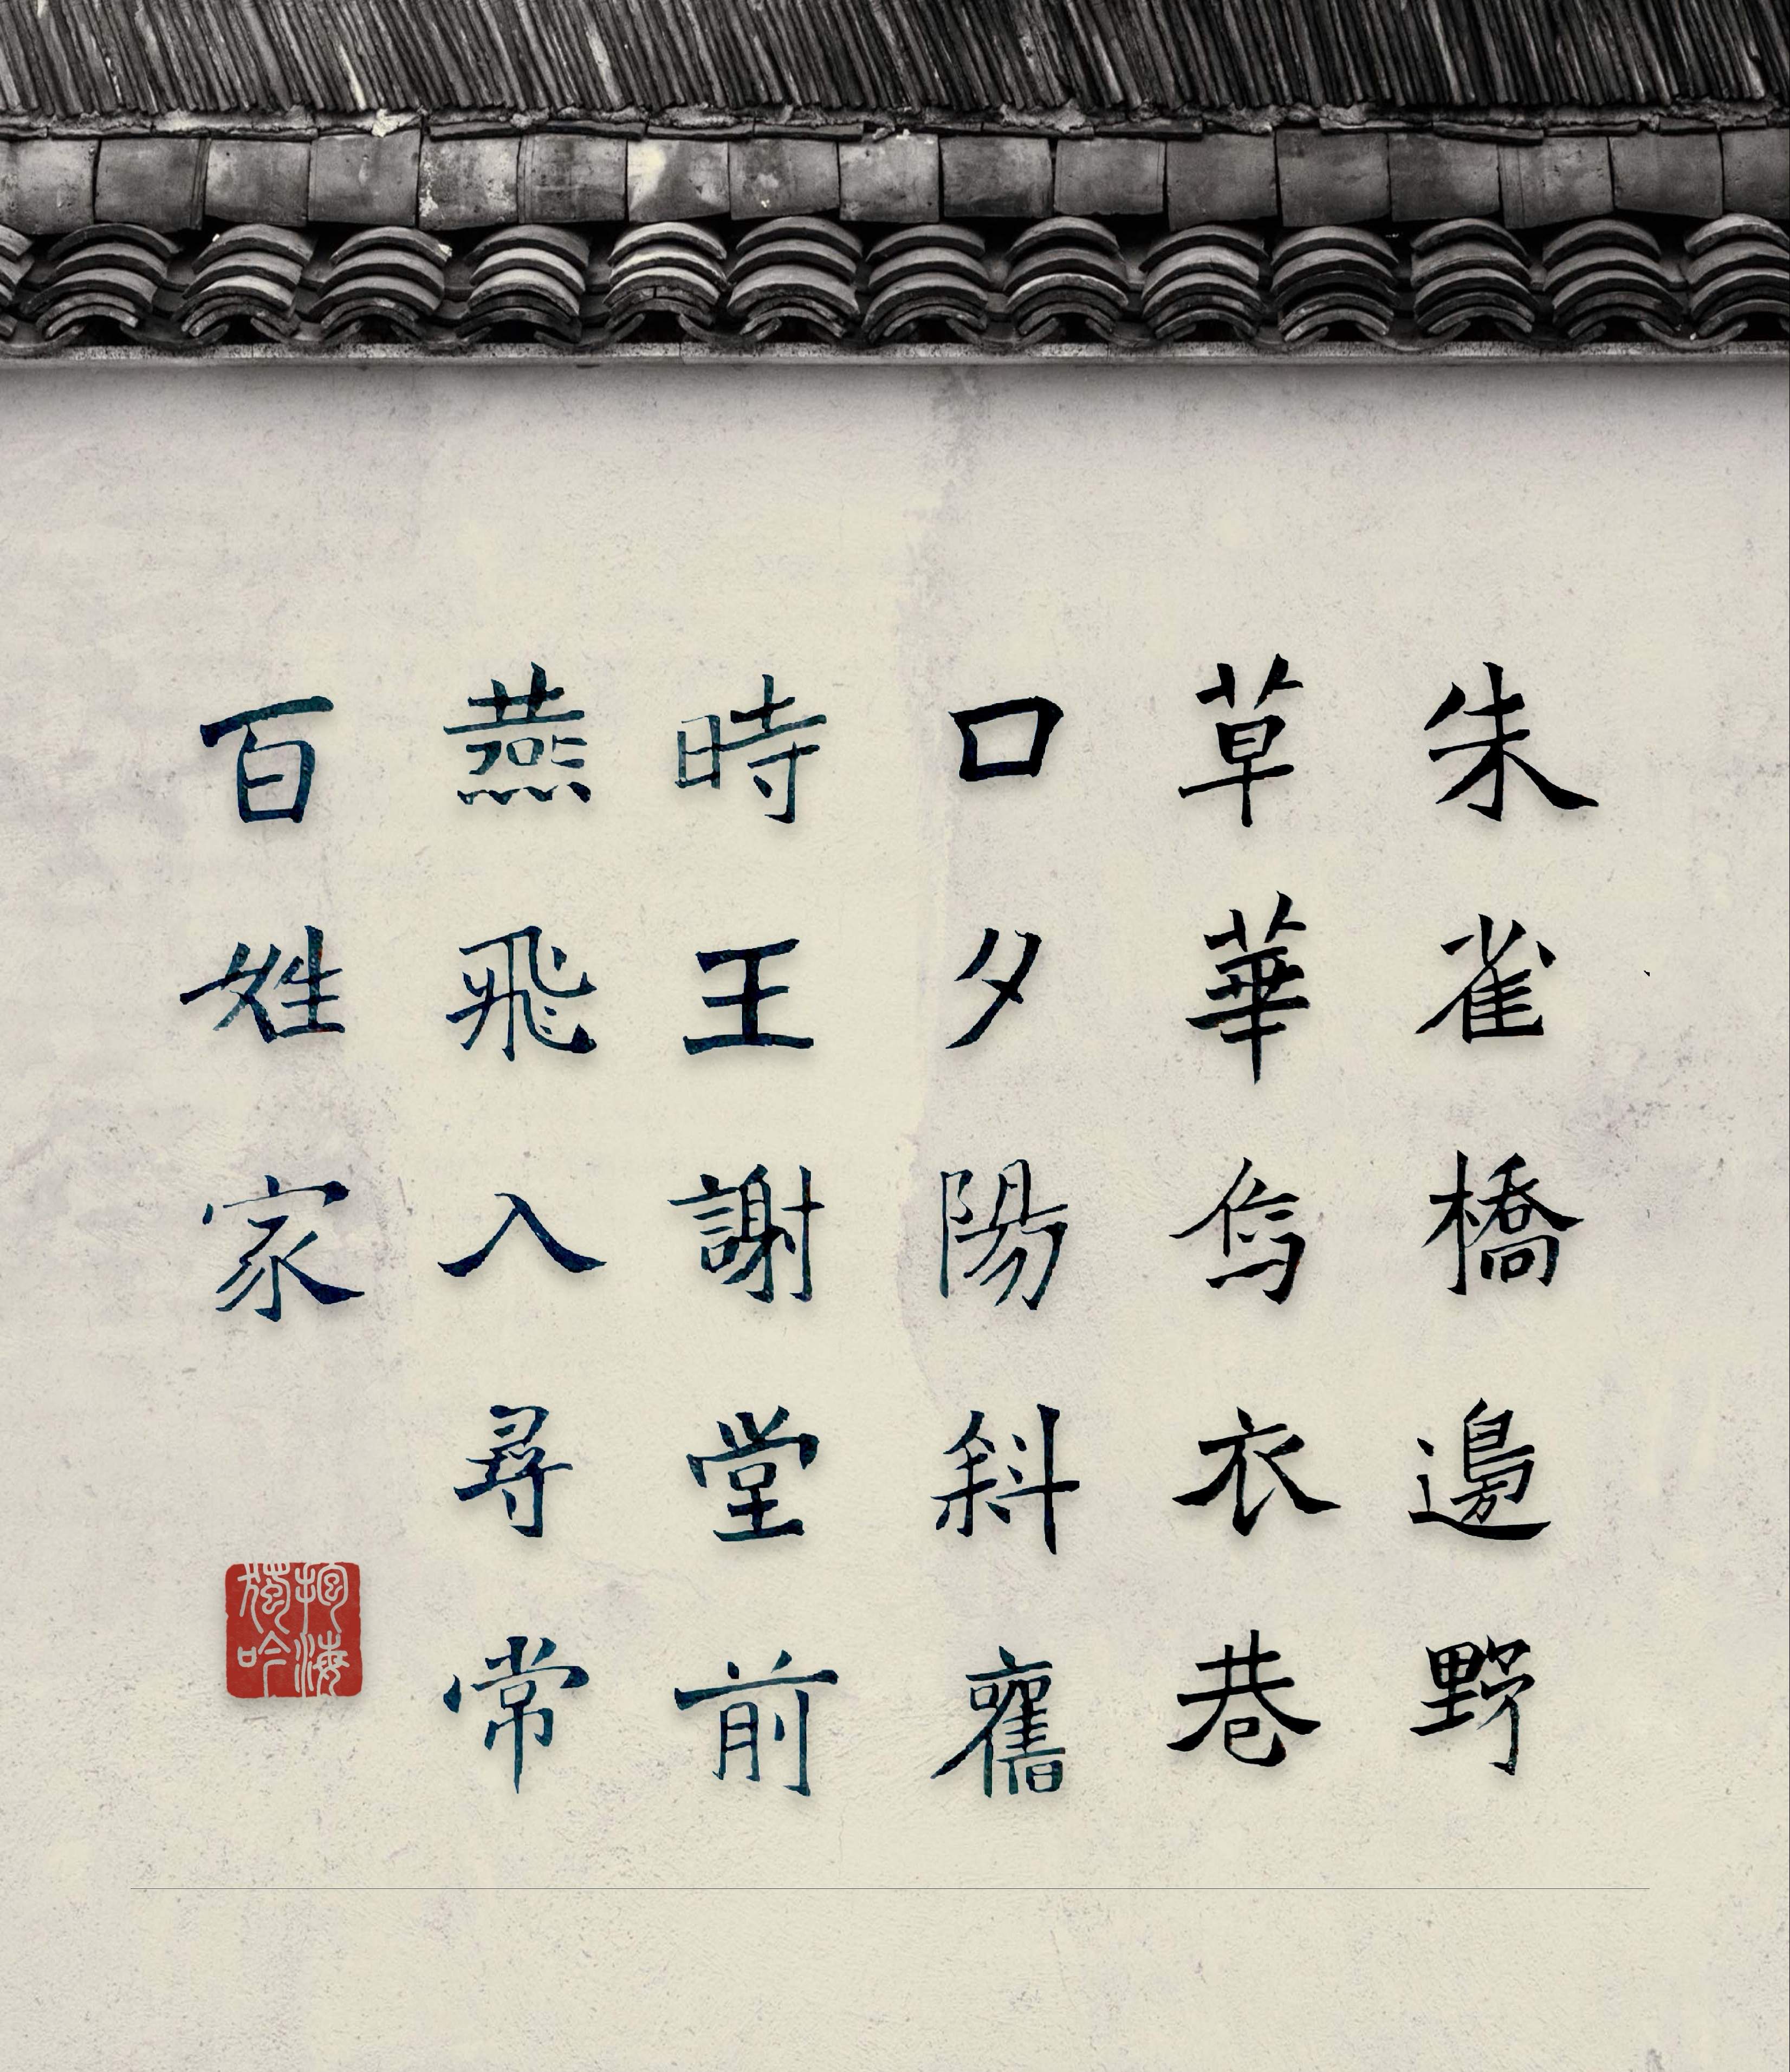 朱雀橋邊野
草華烏衣巷
口夕陽斜舊
時王謝堂前
燕飛入尋常
百姓家